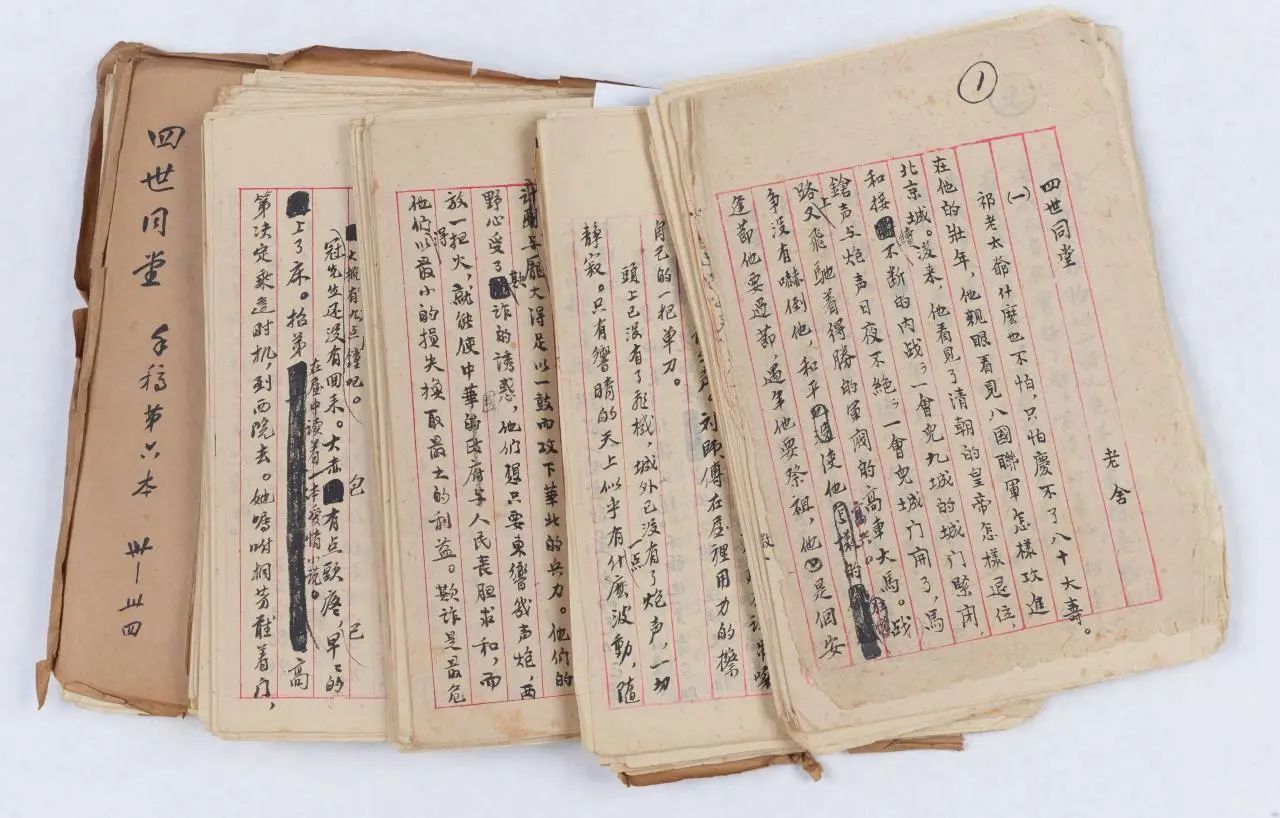 1
四世同堂 老舍
(一)
祁老太爺什麼也不怕，只怕慶不了八十大壽。
在他的壯年，他親眼看見八國聯軍怎樣攻進
北京城。後来，他看見了清朝的皇帝怎樣退位，
和接續不断的内战；一會兒九城的城门緊闭，
鎗声与炮声日夜不绝；一會兒城门開了，馬
路上又飛馳着得勝的軍阀的高車大馬。战
争没有嚇倒他，和平使他高兴。
逢節他要過節，過年他要祭祖，他是個安
刘師傅在屋裡用力的擦
自己的一把单刀。
頭上已没有了飛機，城外已没有了炮声，一切
静寂。只有響晴的天上似乎有一点什麼波動，隨
龐大得足以一鼓而攻下華北的兵力。他们的
野心受了欺诈的诱惑，他们想只要東響幾声炮，西
放一把火，就能使中華的与人民丧胆求和，而
他们得以最小的损失换取最大的利益。欺诈是最危
大概有八点鐘吧。
冠先生还没有回来。大赤包有点头疼，早早的
上了床。招弟在屋中读着一本爱情小说。高
第决定乘这时机，到西院去。她嘱咐桐芳听着门，
四世同堂 手稿第六本 卅一卅四